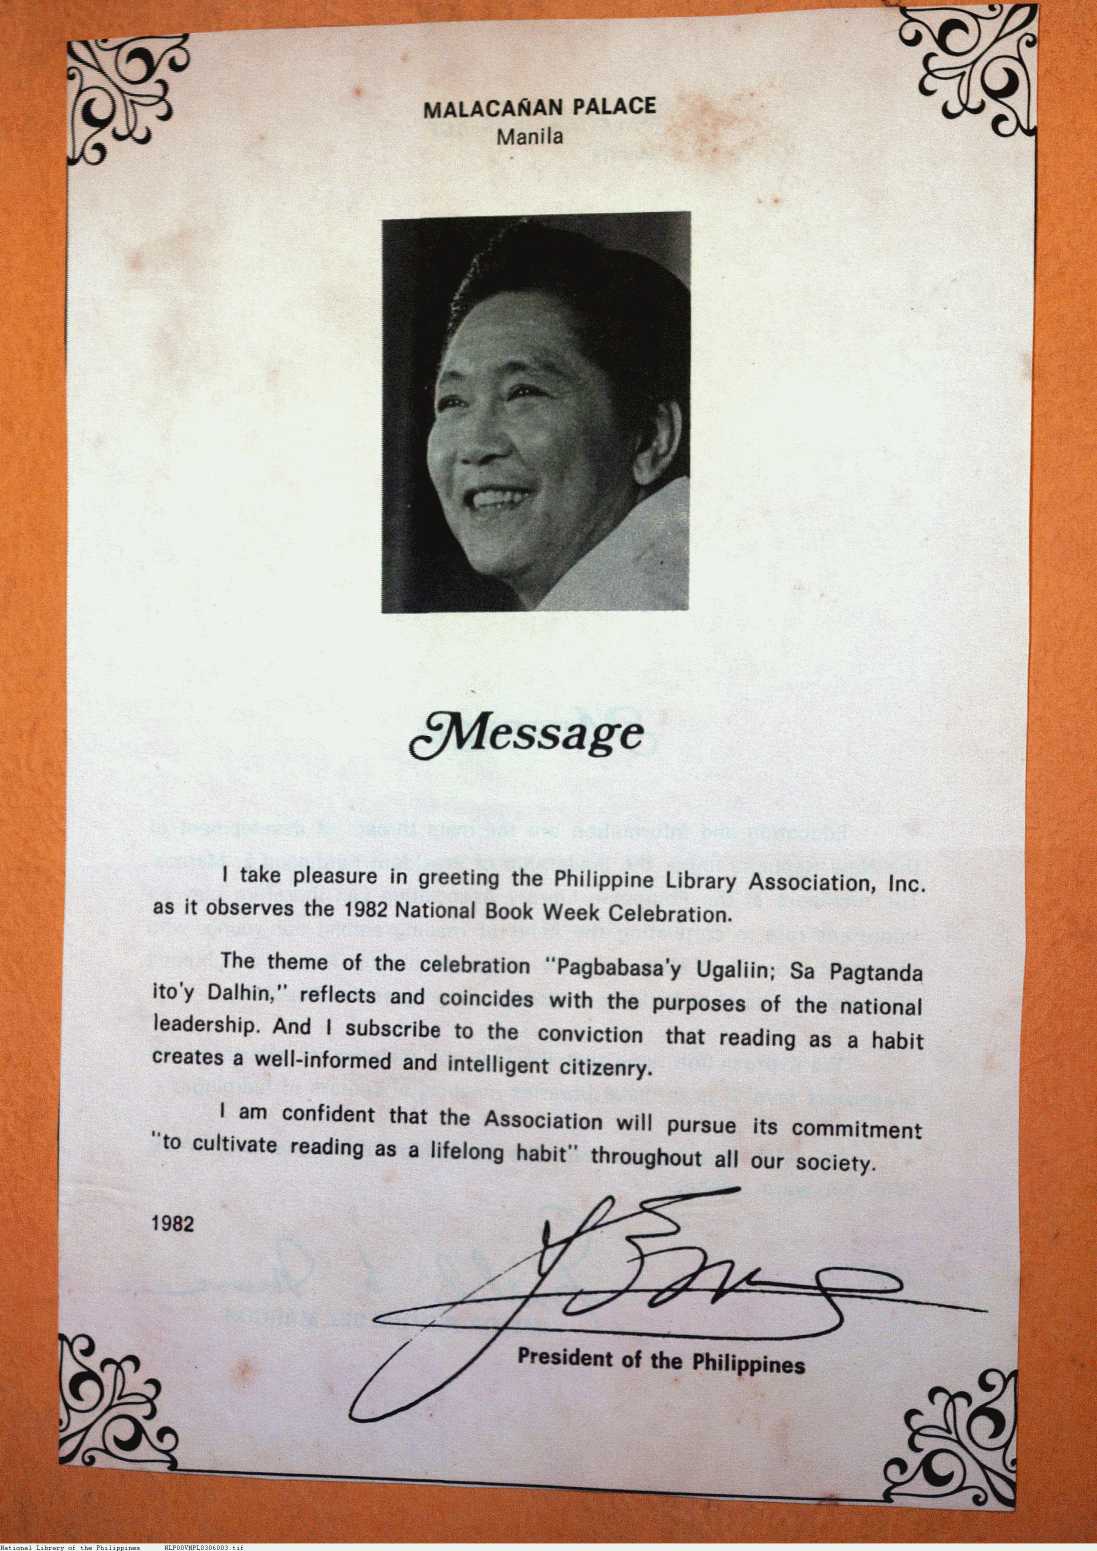 MALACAÑAN PALACE
Manila
Message
I take pleasure in greeting the Philippine Library Association, Inc.
as it observes the 1982 National Book Week Celebration.
The theme of the celebration "Pagbabasa'y Ugaliin; Sa Pagtanda
ito'y Dalhin," reflects and coincides with the purposes of the national
leadership. And I subscribe to the conviction that reading as a habit
creates a well-informed and intelligent citizenry.
I am confident that the Association will pursue its commitment
"to cultivate reading as a lifelong habit" throughout all our society.
1982
President of the Philippines
National Library of the Philippines NLP00VMPL0306003.tif